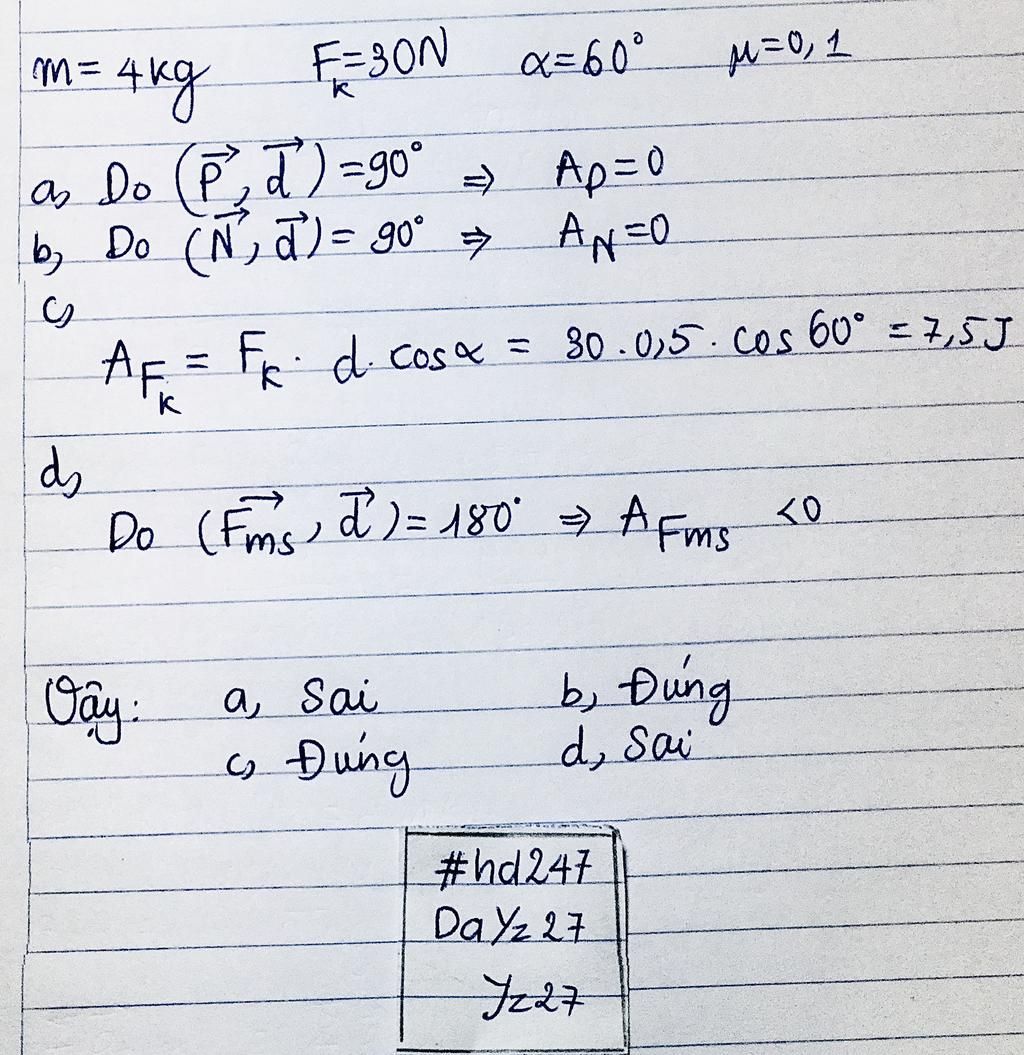 m = 4kg F_k = 30N α = 60° μ = 0,1
a, Do (P⃗, d⃗) = 90° ⇒ A_P = 0
b, Do (N⃗, d⃗) = 90° ⇒ A_N = 0
c,
A_{F_k} = F_k · d · cos α = 30 . 0,5 . cos 60° = 7,5 J
d,
Do (F⃗_ms, d⃗) = 180° ⇒ A_{Fms} < 0
Vậy: a, Sai b, Đúng
c, Đúng d, Sai
#hd247
DaYz27
Yz27